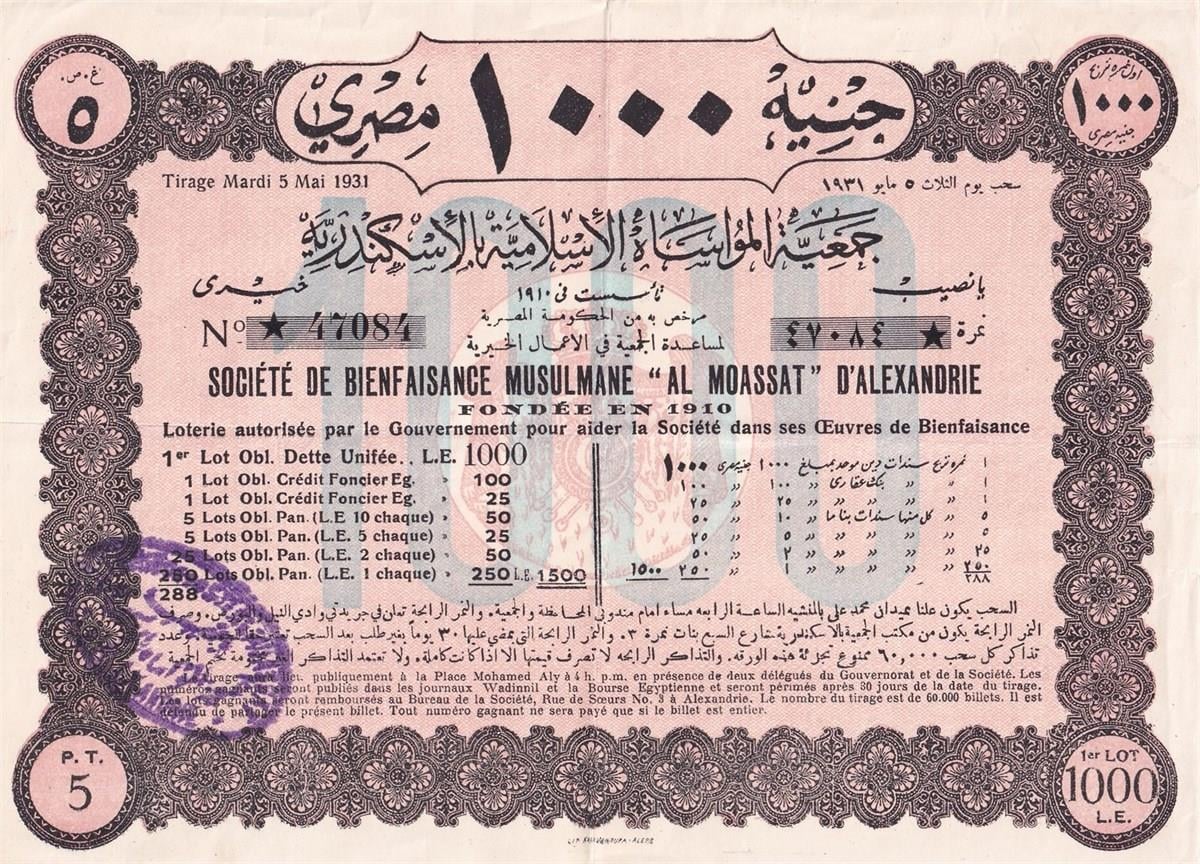 غ. ص.
٥
جنيه ١٠٠٠ مصري
اول نمرة تربح
١٠٠٠
جنيه مصرى
Tirage Mardi 5 Mai 1931
سحب يوم الثلاث ٥ مايو ١٩٣١
جمعية المؤاساة الأسلامية بالأسكندرية
يانصيب
خيرى
تأسست فى ١٩١٠
مرخص به من الحكومة المصرية
لمساعدة الجمعية في الاعمال الخيرية
No ★ 47084
نمرة ★ ٤٧٠٨٤
SOCIÉTÉ DE BIENFAISANCE MUSULMANE "AL MOASSAT" D'ALEXANDRIE
FONDÉE EN 1910
Loterie autorisée par le Gouvernement pour aider la Société dans ses Œuvres de Bienfaisance
1er Lot Obl. Dette Unifée.. L.E. 1000
1 Lot Obl. Crédit Foncier Eg. » 100
1 Lot Obl. Crédit Foncier Eg. » 25
5 Lots Obl. Pan. (L.E 10 chaque) » 50
5 Lots Obl. Pan. (L.E. 5 chaque) » 25
25 Lots Obl. Pan. (L.E. 2 chaque) » 50
250 Lots Obl. Pan. (L.E. 1 chaque) » 250 L.E. 1500
288
١ نمرة تربح سندات دين موحد بمبلغ ١٠٠٠ جنيه مصرى ١٠٠٠
١ » » » بنك عقارى » ١٠٠ » ١٠٠
١ » » » » » ٢٥ » ٢٥
٥ » كل منها سندات بناما » ١٠ » ٥٠
٥ » » » » » ٥ » ٢٥
٢٥ » » » » » ٢ » ٥٠
٢٥٠ » » » » » ١ » ٢٥٠ ١٥٠٠
٢٨٨
السحب يكون علنا بميدان محمد على بالمنشيه الساعة الرابعه مساء امام مندوبى المحافظة والجمعية. والنمر الرابحة تعلن في جريدتي وادي النيل والبورص. وصرف
النمر الرابحة يكون من مكتب الجمعية بالاسكندرية بشارع السبع بنات نمرة ٣. والنمر الرابحة التي يمضي عليها ٣٠ يوماً بغير طلب بعد السحب تعتبر وعدد
تذاكر كل سحب ٦٠,٠٠٠ ممنوع تجزئة هذه الورقه. والتذاكر الرابحه لا تصرف قيمتها الا اذا كانت كاملة. ولا تعتمد التذاكر الغير مختومة بختم الجمعية
Le tirage aura lieu publiquement à la Place Mohamed Aly à 4 h. p.m. en présence de deux délégués du Gouvernorat et de la Société. Les
numéros gagnants seront publiés dans les journaux Wadinnil et la Bourse Egyptienne et seront périmés après 30 jours de la date du tirage.
Les lots gagnants seront remboursés au Bureau de la Société, Rue de Sœurs No. 3 à Alexandrie. Le nombre du tirage est de 60.000 billets. Il est
défendu de partager le présent billet. Tout numéro gagnant ne sera payé que si le billet est entier.
P. T.
5
1er LOT
1000
L.E.